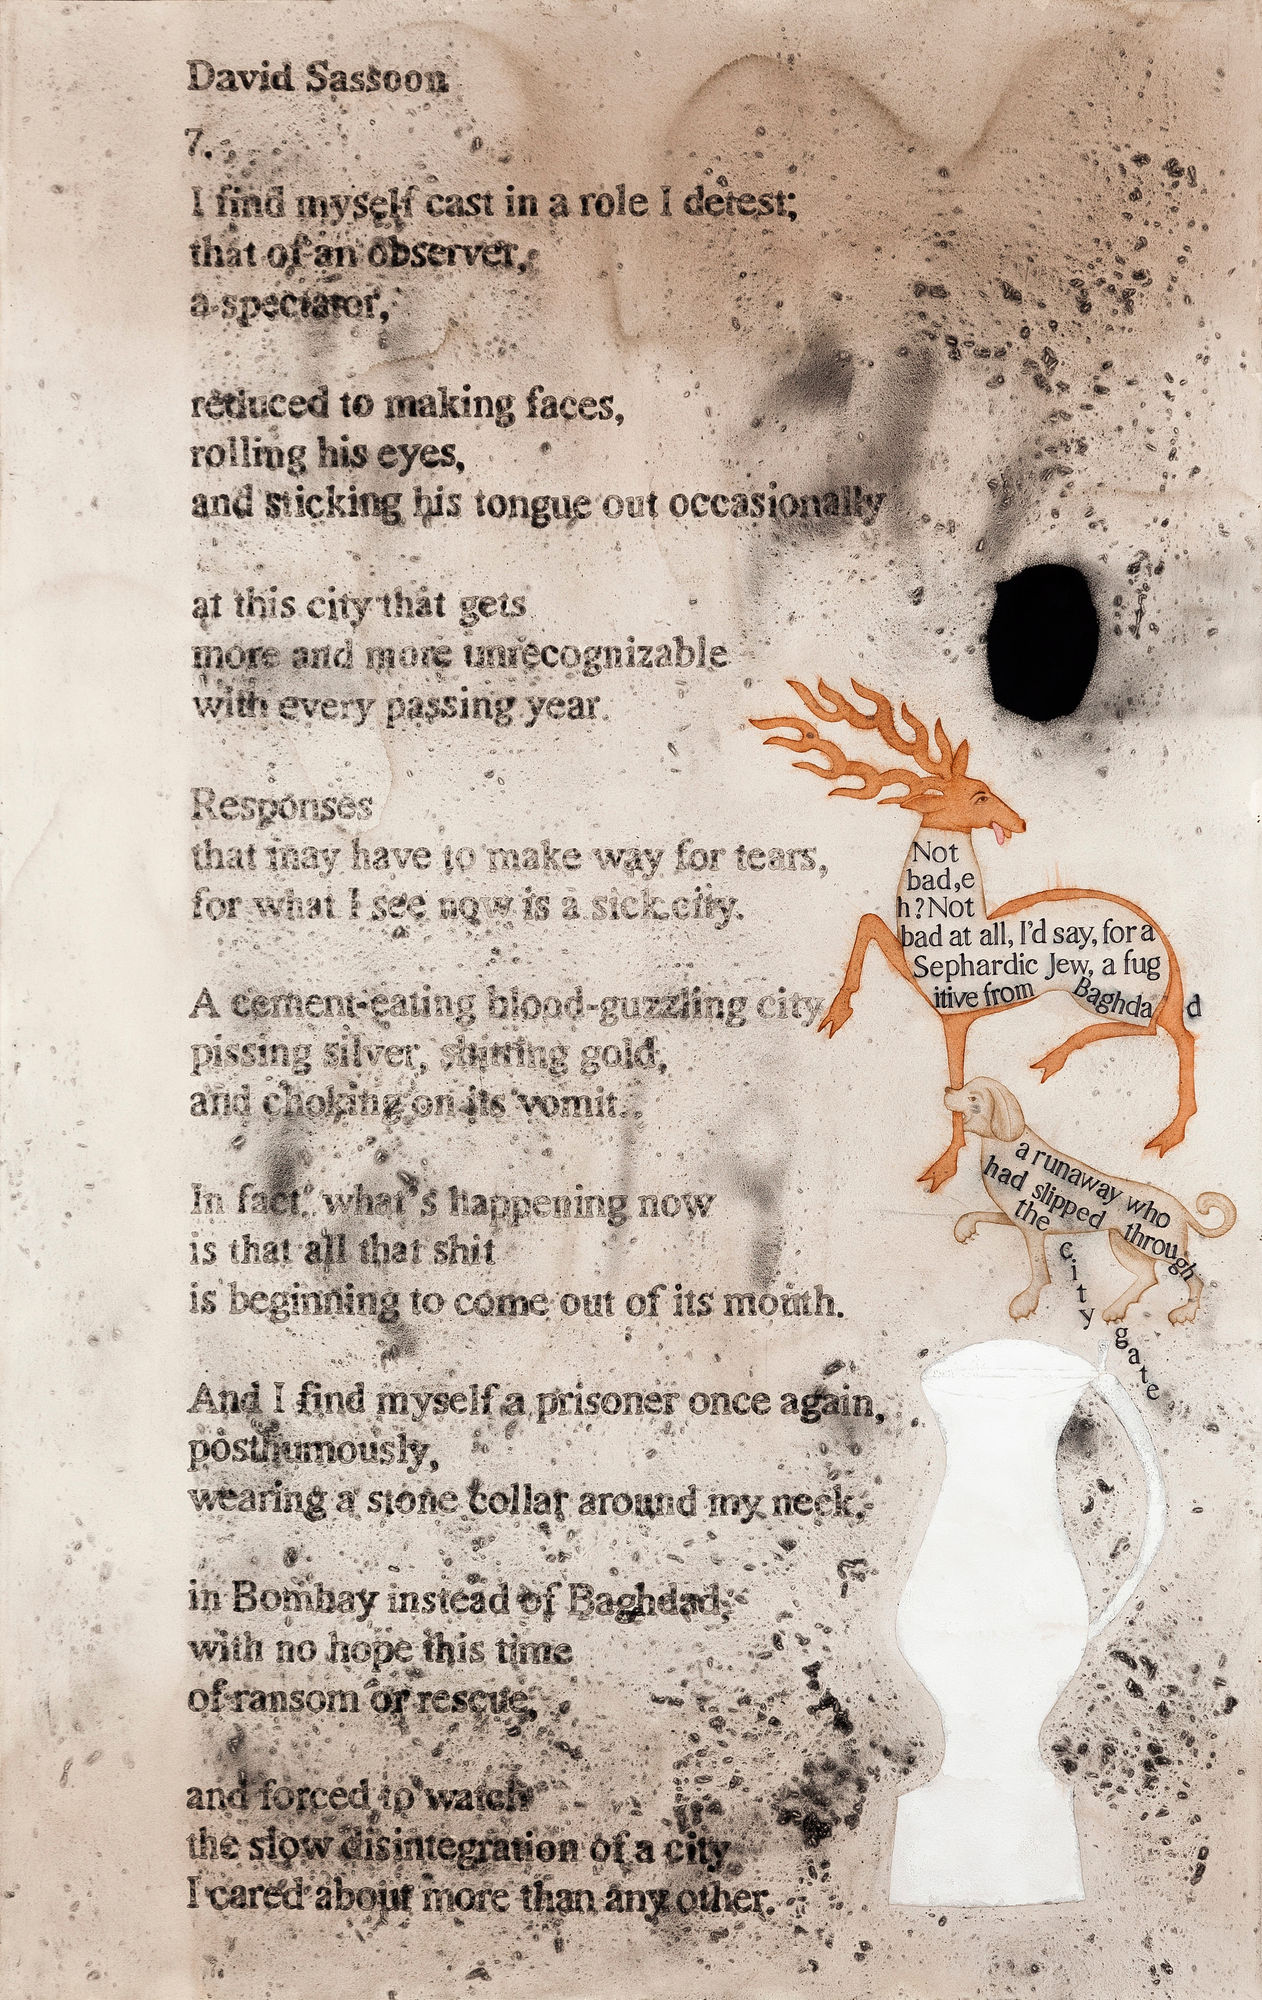 David Sassoon
7.
I find myself cast in a role I detest;
that of an observer,
a spectator,
reduced to making faces,
rolling his eyes,
and sticking his tongue out occasionally
at this city that gets
more and more unrecognizable
with every passing year.
Responses
that may have to make way for tears,
for what I see now is a sick city.
A cement-eating blood-guzzling city
pissing silver, shitting gold,
and choking on its vomit.
In fact, what's happening now
is that all that shit
is beginning to come out of its mouth.
And I find myself a prisoner once again,
posthumously,
wearing a stone collar around my neck,
in Bombay instead of Baghdad,
with no hope this time
of ransom or rescue,
and forced to watch
the slow disintegration of a city
I cared about more than any other.
Not
bad,e
h?Not
bad at all, I'd say, for a
Sephardic Jew, a fug
itive from Baghda d
a runaway who
had slipped through
the
city
gate